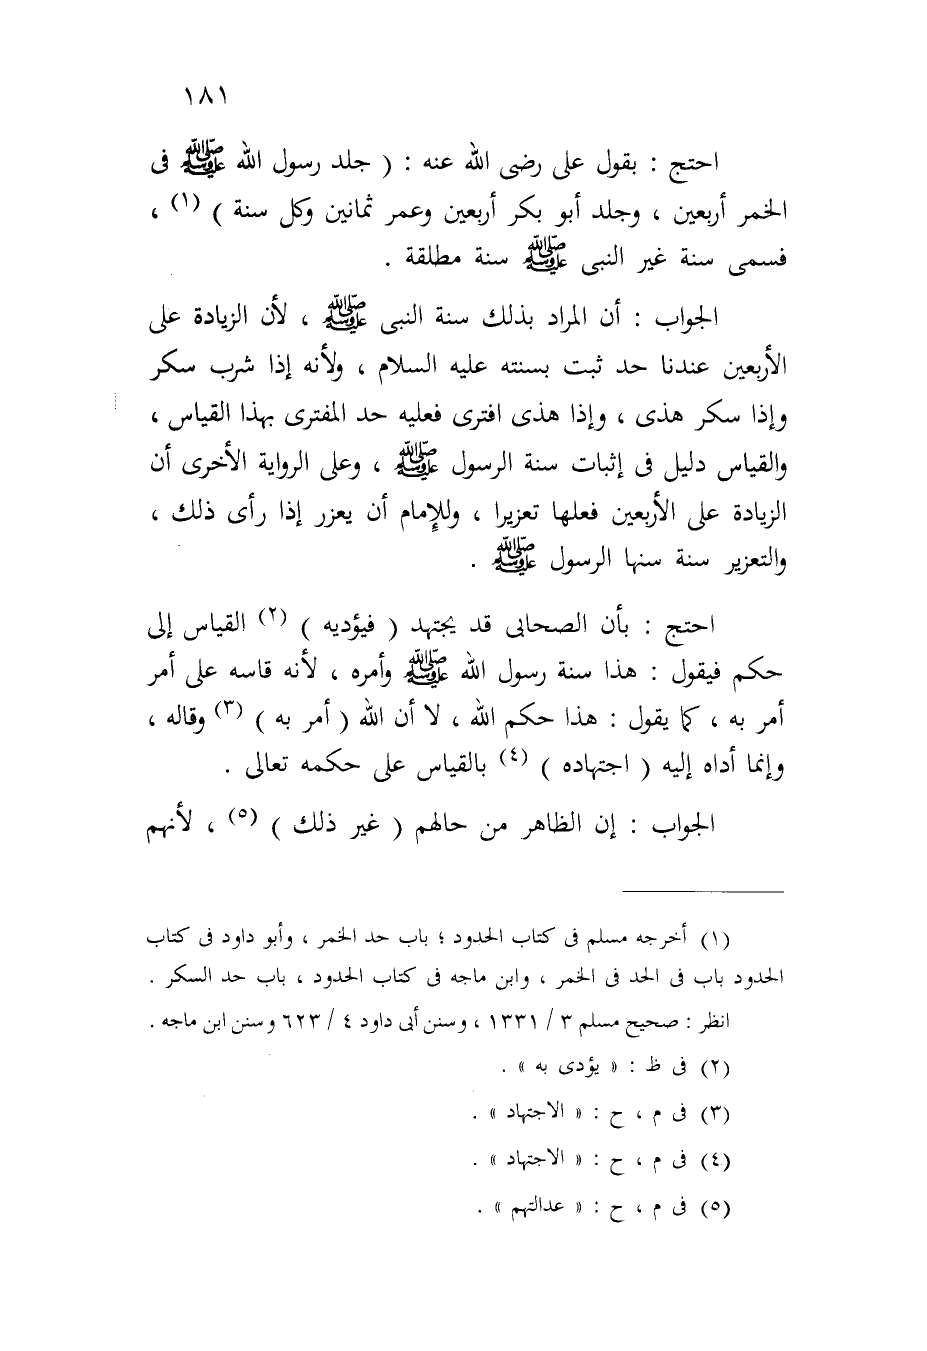 ١٨١
احتج : بقول على رضى الله عنه : ( جلد رسول الله ﷺ فى
الخمر أربعين ، وجلد أبو بكر أربعين وعمر ثمانين وكل سنة ) (١) ،
فسمى سنة غير النبى ﷺ سنة مطلقة .
الجواب : أن المراد بذلك سنة النبى ﷺ ، لأن الزيادة على
الأربعين عندنا حد ثبت بسنته عليه السلام ، ولأنه إذا شرب سكر
وإذا سكر هذى ، وإذا هذى افترى فعليه حد المفترى بهذا القياس ،
والقياس دليل فى إثبات سنة الرسول ﷺ ، وعلى الرواية الأخرى أن
الزيادة على الأربعين فعلها تعزيرا ، وللإمام أن يعزر إذا رأى ذلك ،
والتعزير سنة سنها الرسول ﷺ .
احتج : بأن الصحابى قد يجتهد ( فيؤديه ) (٢) القياس إلى
حكم فيقول : هذا سنة رسول الله ﷺ وأمره ، لأنه قاسه على أمر
أمر به ، كما يقول : هذا حكم الله ، لا أن الله ( أمر به ) (٣) وقاله ،
وإنما أداه إليه ( اجتهاده ) (٤) بالقياس على حكمه تعالى .
الجواب : إن الظاهر من حالهم ( غير ذلك ) (٥) ، لأنهم
(١) أخرجه مسلم فى كتاب الحدود ؛ باب حد الخمر ، وأبو داود فى كتاب
الحدود باب فى الحد فى الخمر ، وابن ماجه فى كتاب الحدود ، باب حد السكر .
انظر : صحيح مسلم ٣ / ١٣٣١ ، وسنن أبى داود ٤ / ٦٢٣ وسنن ابن ماجه .
(٢) فى ظ : « يؤدى به » .
(٣) فى م ، ح : « الاجتهاد » .
(٤) فى م ، ح : « الاجتهاد » .
(٥) فى م ، ح : « عدالتهم » .